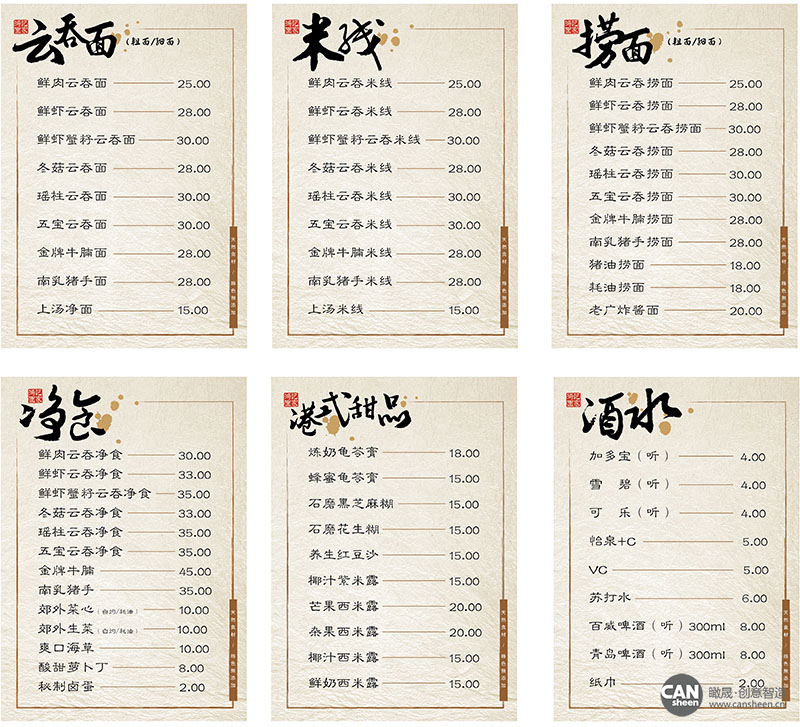 云吞面（粗面/细面）
鲜肉云吞面 25.00
鲜虾云吞面 28.00
鲜虾蟹籽云吞面 30.00
冬菇云吞面 28.00
瑶柱云吞面 30.00
五宝云吞面 30.00
金牌牛腩面 28.00
南乳猪手面 28.00
上汤净面 15.00
天然食材 绿色无添加
米线
鲜肉云吞米线 25.00
鲜虾云吞米线 28.00
鲜虾蟹籽云吞米线 30.00
冬菇云吞米线 28.00
瑶柱云吞米线 30.00
五宝云吞米线 30.00
金牌牛腩米线 28.00
南乳猪手米线 28.00
上汤米线 15.00
天然食材 绿色無添加
捞面（粗面/细面）
鲜肉云吞捞面 25.00
鲜虾云吞捞面 28.00
鲜虾蟹籽云吞捞面 30.00
冬菇云吞捞面 28.00
瑶柱云吞捞面 30.00
五宝云吞捞面 30.00
金牌牛腩捞面 28.00
南乳猪手捞面 28.00
猪油捞面 18.00
耗油捞面 18.00
老广炸酱面 20.00
天然食材 绿色無添加
净食
鲜肉云吞净食 30.00
鲜虾云吞净食 33.00
鲜虾蟹籽云吞净食 35.00
冬菇云吞净食 33.00
瑶柱云吞净食 35.00
五宝云吞净食 35.00
金牌牛腩 45.00
南乳猪手 35.00
郊外菜心（白灼/耗油） 10.00
郊外生菜（白灼/耗油） 10.00
爽口海草 10.00
酸甜萝卜丁 8.00
秘制卤蛋 2.00
天然食材 绿色無添加
港式甜品
炼奶龟苓膏 18.00
蜂蜜龟苓膏 15.00
石磨黑芝麻糊 15.00
石磨花生糊 15.00
养生红豆沙 15.00
椰汁紫米露 15.00
芒果西米露 20.00
杂果西米露 20.00
椰汁西米露 15.00
鲜奶西米露 15.00
天然食材 绿色無添加
酒水
加多宝（听） 4.00
雪 碧（听） 4.00
可 乐（听） 4.00
怡泉+C 5.00
VC 5.00
苏打水 6.00
百威啤酒（听）300ml 8.00
青岛啤酒（听）300ml 8.00
纸巾 2.00
天然食材 绿色無添加
CAN sheen
瞰晟·创意智造
www.cansheen.cn